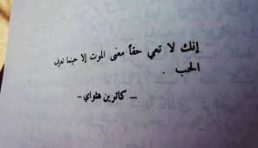 إنك لا تعي حقاً معنى الموت إلا حينما تعرف
الحب .
– كاثرين هثواي –